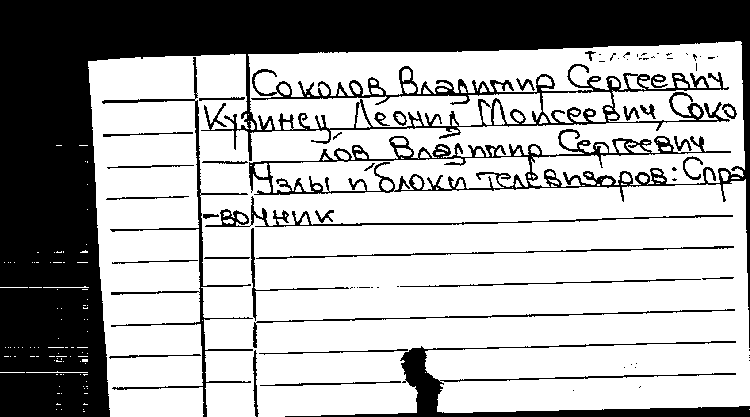 Соколов Владимир Сергеевич
Кузинец Леонид Моисеевич, Соко
лов Владимир Сергеевич
Узлы и блоки телевизоров: Спра
-вочник